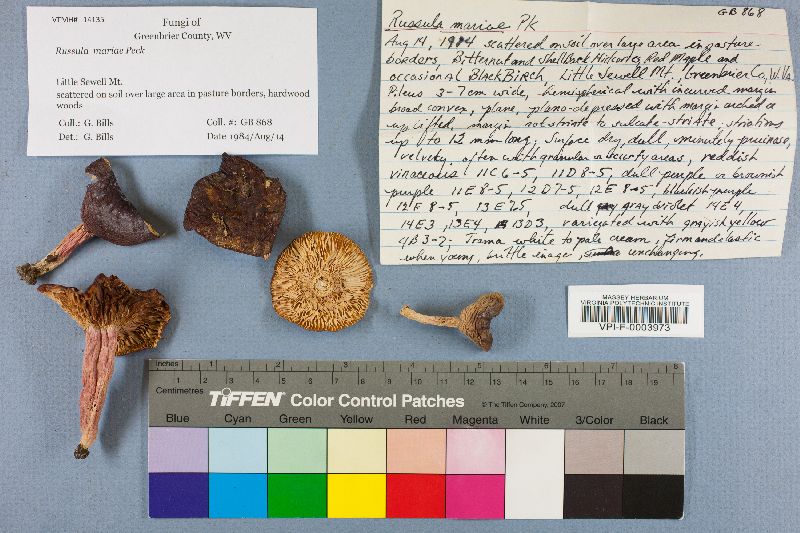 VTMH# 14135
Fungi of
Greenbrier County, WV
Russula mariae Peck
Little Sewell Mt.
scattered on soil over large area in pasture borders, hardwood
woods
Coll.: G. Bills Coll. #: GB 868
Det.: G. Bills Date 1984/Aug/14
GB 868
Russula mariae Pk
Aug 14, 1984 scattered on soil over large area in pasture
borders, Bitternut and Shellbark Hickories, Red Maple and
occasional BLACK BIRCH, Little Sewell Mt., Greenbrier Co, W.Va.
Pileus 3-7cm wide, hemispherical with incurved margin
broad convex, plane, plano-depressed with margin arched or
uplifted, margin not striate to sulcate-striate, striations
up to 12 mm long, Surface dry, dull, minutely pruinose,
velvety, often with granular or scurfy areas, reddish
vinaceous 11C6-5, 11D8-5, dull purple or brownish
purple 11E8-5, 12D7-5, 12E8-5 blackish-purple
12F8-5, 13E7-5, dull gray violet 14E4
14E3, 13E4, 13D3, variegated with grayish yellow
4B3-2; Trama white to pale cream, firm and elastic
when young, brittle in age, unchanging.
MASSEY HERBARIUM
VIRGINIA POLYTECHNIC INSTITUTE
VPI-F-0003973
Inches 1 2 3 4 5 6 7 8
Centimetres 1 2 3 4 5 6 7 8 9 10 11 12 13 14 15 16 17 18 19
TIFFEN Color Control Patches © The Tiffen Company, 2007
Blue Cyan Green Yellow Red Magenta White 3/Color Black